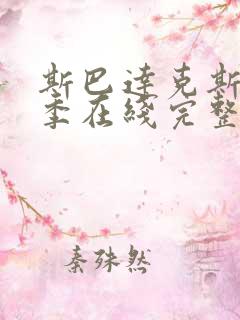 斯巴达克斯
季在线完整
秦殊然